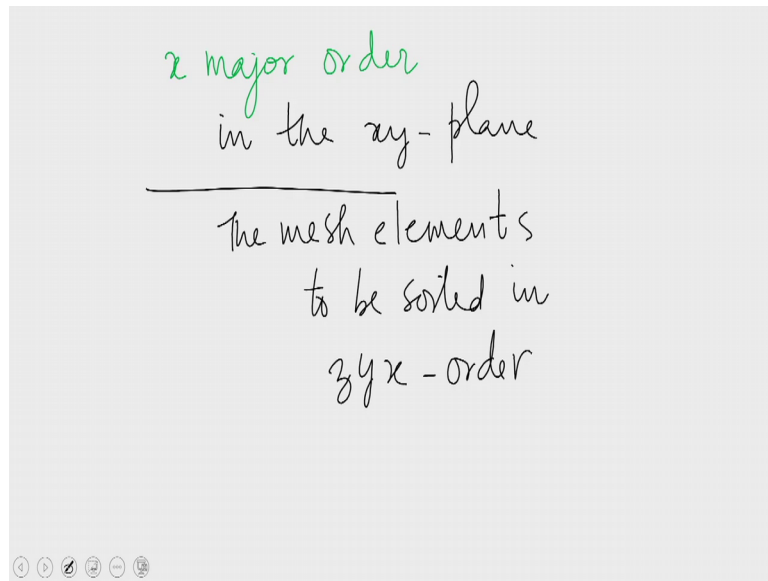 x major order
in the xy-plane
The mesh elements
to be sorted in
zyx-order